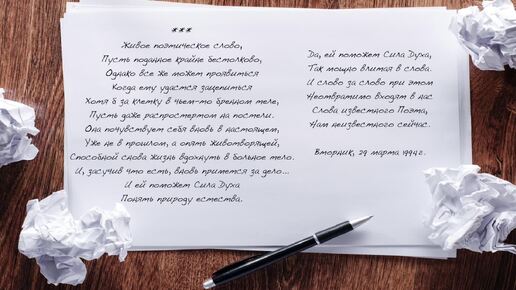 ***
Живое поэтическое слово,
Пусть поданное крайне бестолково,
Однако все же может проявиться
Когда ему удастся зацепиться
Хотя б за клетку в чьем-то бренном теле,
Пусть даже распростертом на постели.
Она почувствует себя вновь в настоящем,
Уже не в прошлом, а опять животворящей,
Способной снова жизнь вдохнуть в больное тело.
И, засучив что есть, вновь примется за дело...
И ей поможет Сила Духа
Понять природу естества.
Да, ей поможет Сила Духа,
Так мощно влитая в слова.
И слово за слово при этом
Неотвратимо входят в нас
Слова известного Поэта,
Нам неизвестного сейчас.
Вторник, 29 марта 1994 г.